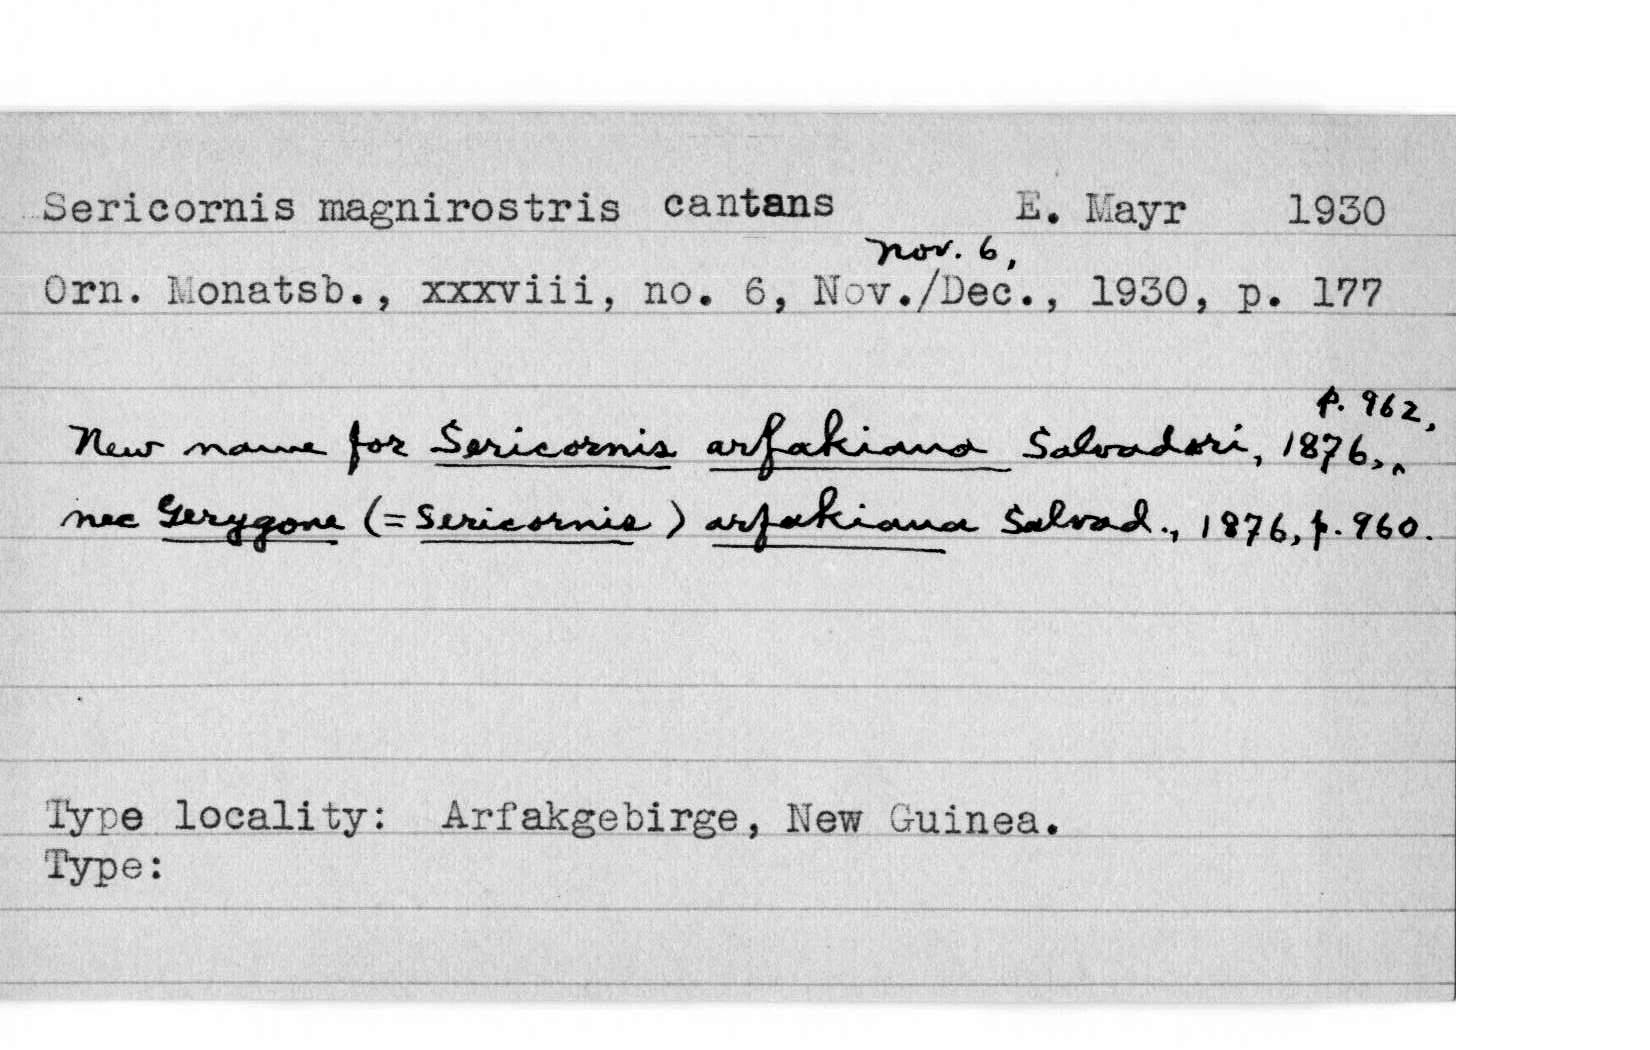 Sericornis magnirostris cantans E. Mayr 1930
Nov. 6,
Orn. Monatsb., xxxviii, no. 6, Nov./Dec., 1930, p. 177
p. 962,
New name for Sericornis arfakiana Salvadori, 1876,‸
nec Gerygone (=Sericornis) arfakiana Salvad., 1876, p. 960.
Type locality: Arfakgebirge, New Guinea.
Type: